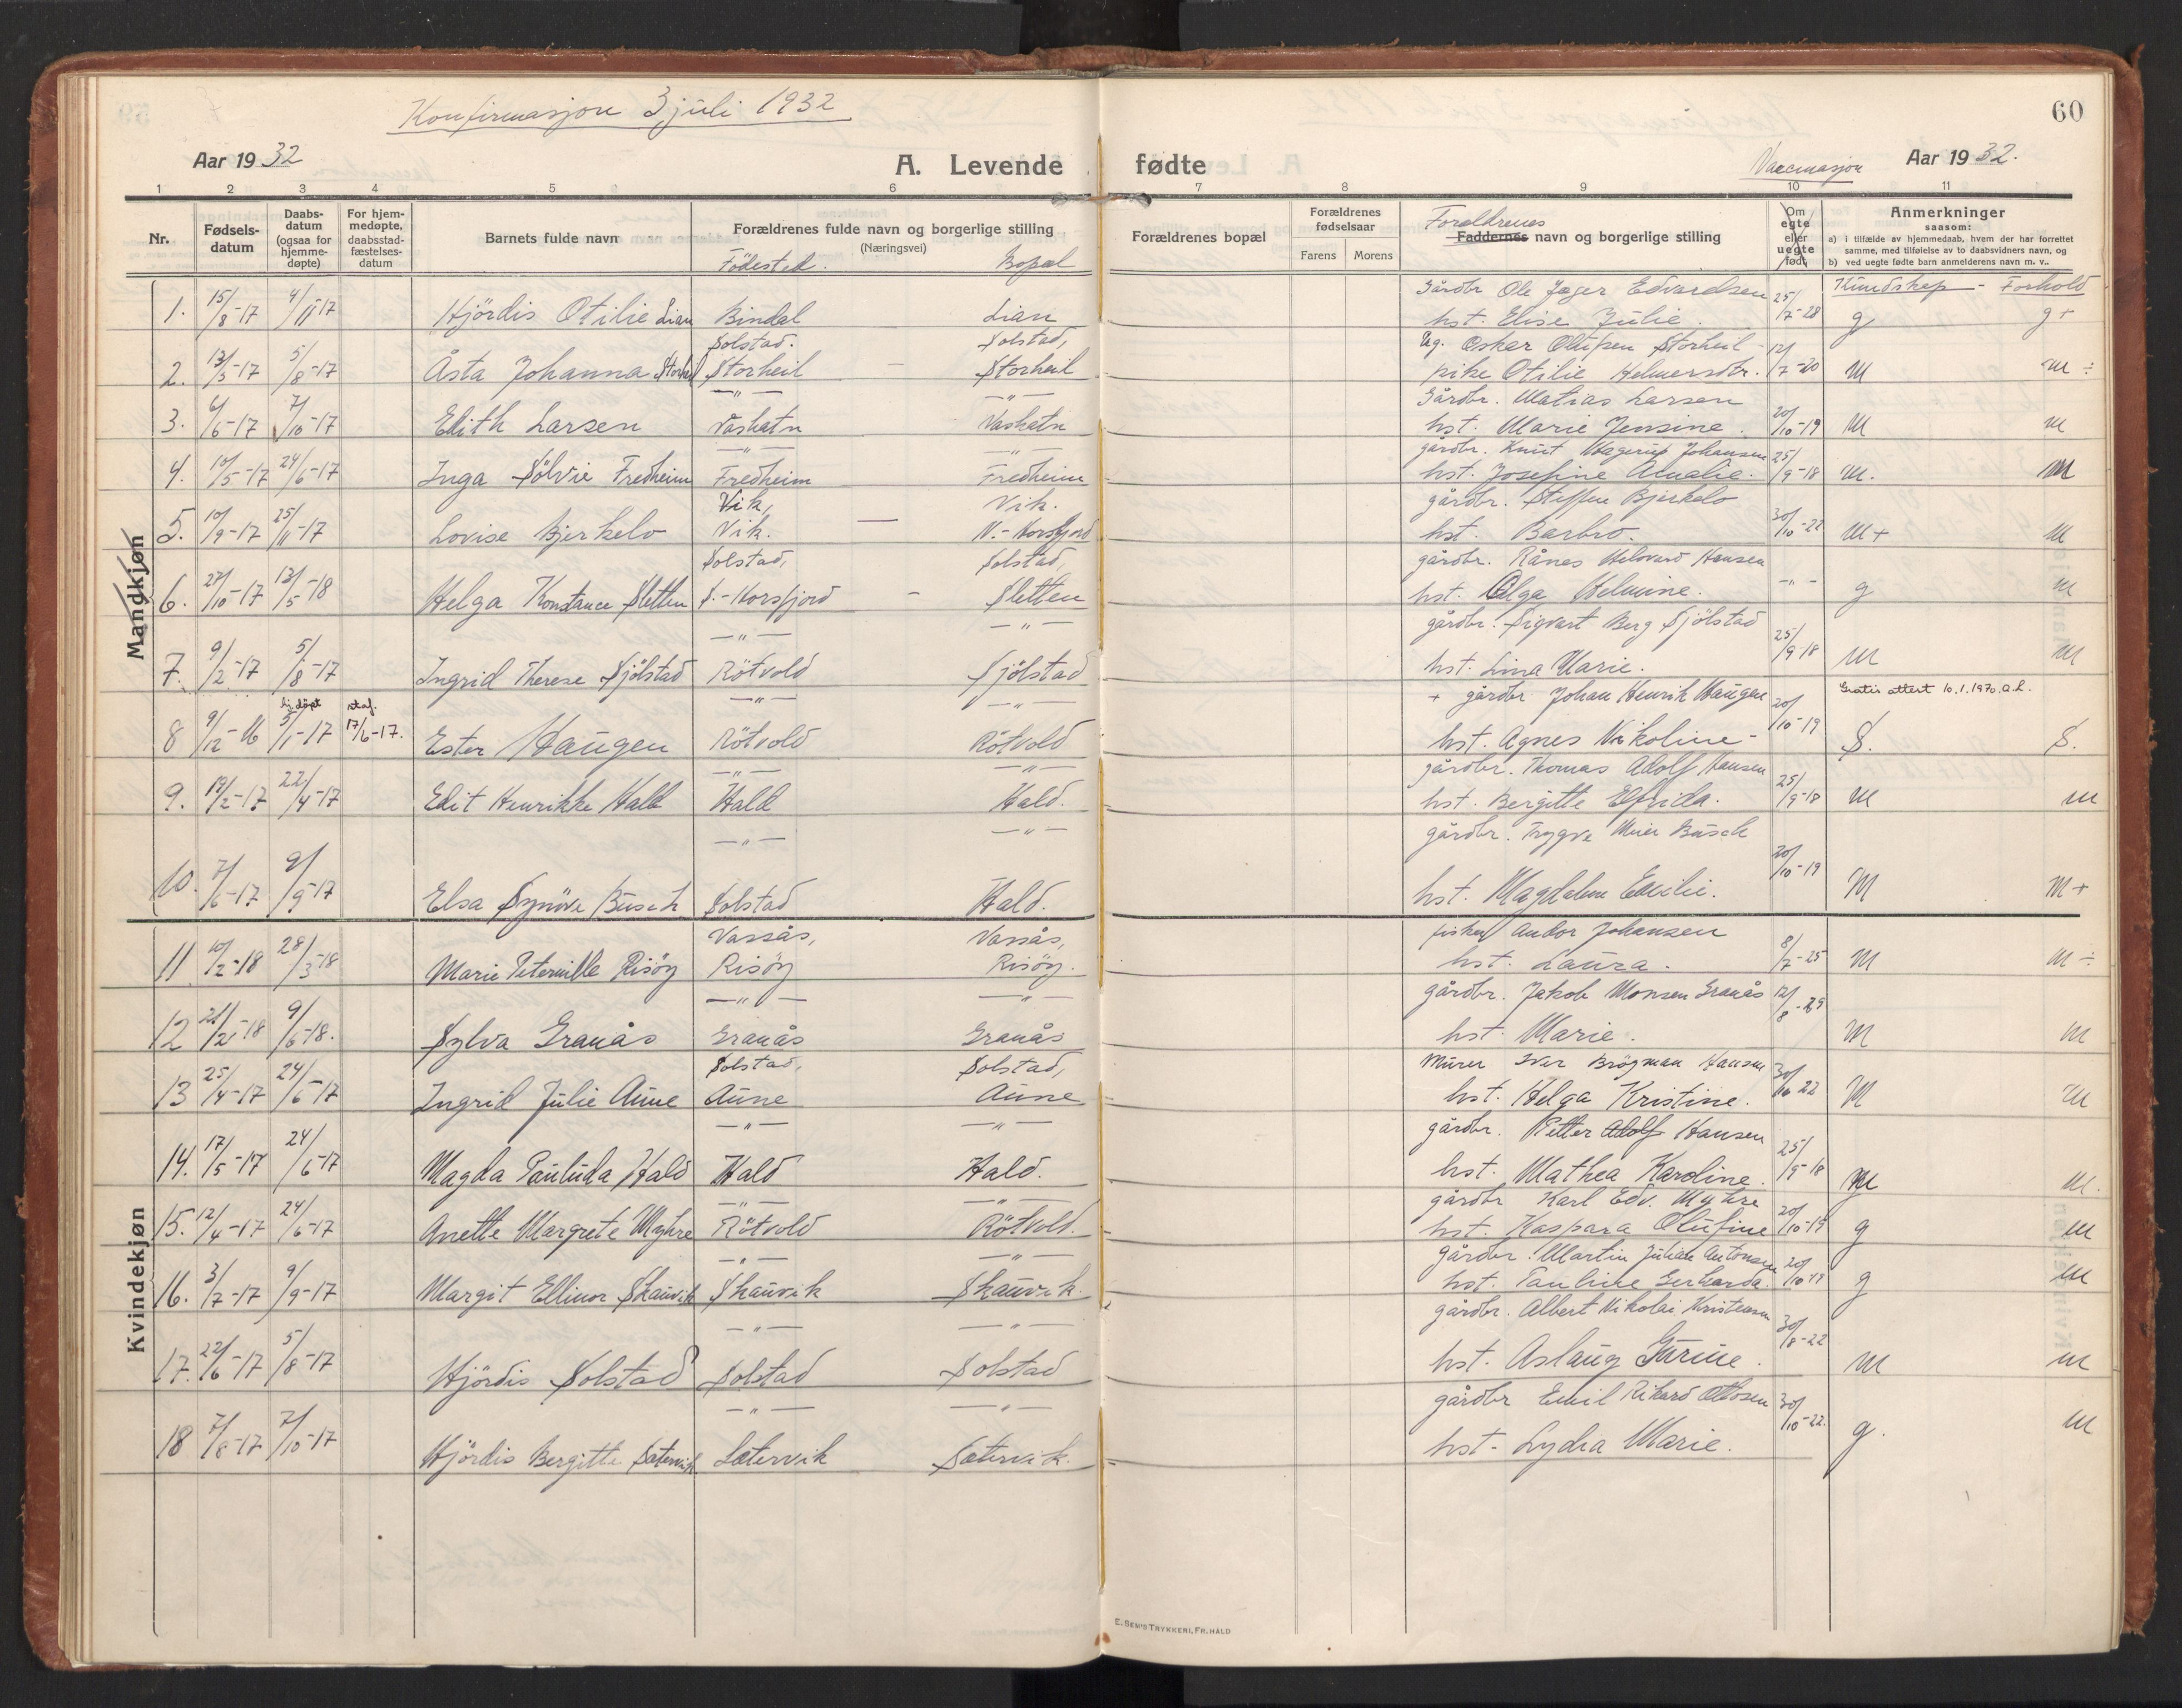 Konfirmasjon 3 juli 1932
60
Aar 1932
A. Levende fødte
Vaccinasjon
Aar 1932.
1 2 3 4 5 6 7 8 9 10 11
Nr.
Fødselsdatum
Daabsdatum (ogsaa for hjemmedøpte)
For hjemmedøpte, daabsstadfæstelsesdatum
Barnets fulde navn
Forældrenes fulde navn og borgerlige stilling
(Næringsvei)
Födested. Bopæl
Forældrenes bopæl
Forældrenes fødselsaar
Farens Morens
Foreldrenes
Faddernes navn og borgerlige stilling
Om egte eller uegte født
Anmerkninger
saasom:
a) i tilfælde av hjemmedaab, hvem der har forrettet samme, med tilføielse av to daabsvidners navn, og
b) ved uegte fødte barn anmelderens navn m. v..
Kundskap - Forhold
Mandkjøn
Kvindekjøn
Gårdbr Ole Jæger Edvardsen
1. 15/8-17 4/11-17 Hjördis Otilie Lian Bindal Lian hst. Elise Julie. 25/7-28 g g+
Solstad. Solstad, Ug. Oskar Olufsen Storheil
2. 13/5-17 5/8-17 Åsta Johanna Storheil Storheil - Storheil pike Otilie Helmersdtr. 12/7-20 M M ÷
-"- -"- Gårdbr. Matias Larsen
3. 6/6-17 7/10-17 Edith Larsen Vashatn Vashatn hst. Marie Jensine. 20/10-19 M M
-"- -"- gårdbr. Knut Hagerup Johansen
4. 10/5-17 24/6-17 Inga Sölvie Fredheim Fredheim Fredheim hst. Josefine Amalie. 25/9-18 M. M
Vik, Vik. gårdbr. Steffen Bjerkelo
5. 10/9-17 25/11-17 Lovise Bjerkelo Vik. - N.-Korsfjord hst. Barbro. 30/10-22 M+ M
Solstad, Solstad, gårdbr. Rånes Helvard Hansen
6. 27/10-17 13/5-18 Helga Konstance Sletten S.-Korsfjord - Sletten hst. Olga Helmine. -"- g M
-"- -"- gårdbr. Sigvart Berg Sjölstad
7. 9/2-17 5/8-17 Ingrid Therese Sjölstad Rötvold Sjölstad hst. Lina Marie. 25/9-18 M M
-"- -"- + gårdbr Johan Henrik Haugen Gratis attest 10.1.1970.
8 9/12-16 hj.döpt 5/1-17 staf. 17/6-17. Ester Haugen Rötvold Rötvold hst. Agnes Nikoline - 20/10-19 S. S.
-"- -"- gårdbr. Thomas Adolf Hansen
9. 19/2-17 22/4-17 Edit Henrikke Hald Hald Hald. hst. Bergitte Elfrida. 25/9-18 M M
-"- -"- gårdbr. Trygve Meier Busch
10. 7/6-17 9/9-17 Elsa Synöve Busch Solstad Hald. hst. Magdalene Emilie. 20/10-19 M M+
Vassås, Vassås, fisker Andor Johansen
11 10/2-18 28/3-18 Marie Peternille Risöy Risöy Risöy. hst. Laura. 8/7-25 M M ÷
-"- -"- gårdbr. Jakob Monsen Granås
12 21/2-18 9/6-18. Sylva Granås Granås Granås hst. Marie. 12/8-29 M M
Solstad, Solstad, Murer Iver Brögman Hansen
13 25/4-17 24/6-17 Ingrid Julie Aune Aune Aune hst. Helga Kristine. 30/10 22 M M
-"- -"- gårdbr. Petter Adolf Hansen
14. 17/5-17 24/6-17 Magda Paulida Hald Hald Hald. hst. Mathea Karoline. 25/9-18 M.
-"- -"- gårdbr Karl Edv. Myhre
15. 12/4-17 24/6-17 Anette Margrete Myhre Rötvold Rötvold. hst. Kaspara Olufine 20/10-19 g M
-"- -"- gårdbr. Martin Julian Antonsen
16. 3/7-17 9/9-17 Margit Ellinor Skauvik Skauvik Skauvik. hst. Pauline Gerharda. 20/10-19 g M
-"- -"- gårdbr. Albert Nikolai Kristensen
17. 22/6-17 5/8-17 Hjördis Solstad Solstad Solstad hst. Aslaug Gurine. 30/8-22 M M
-"- -"- gårdbr Emil Rikard Ottosen
18 7/8-17 7/10-17 Hjördis Bergitte Sætervik Sætervik Sætervik. hst. Lydia Marie. 30/10-22. g. M
E. SEM'S TRYKKERI, FR.HALD